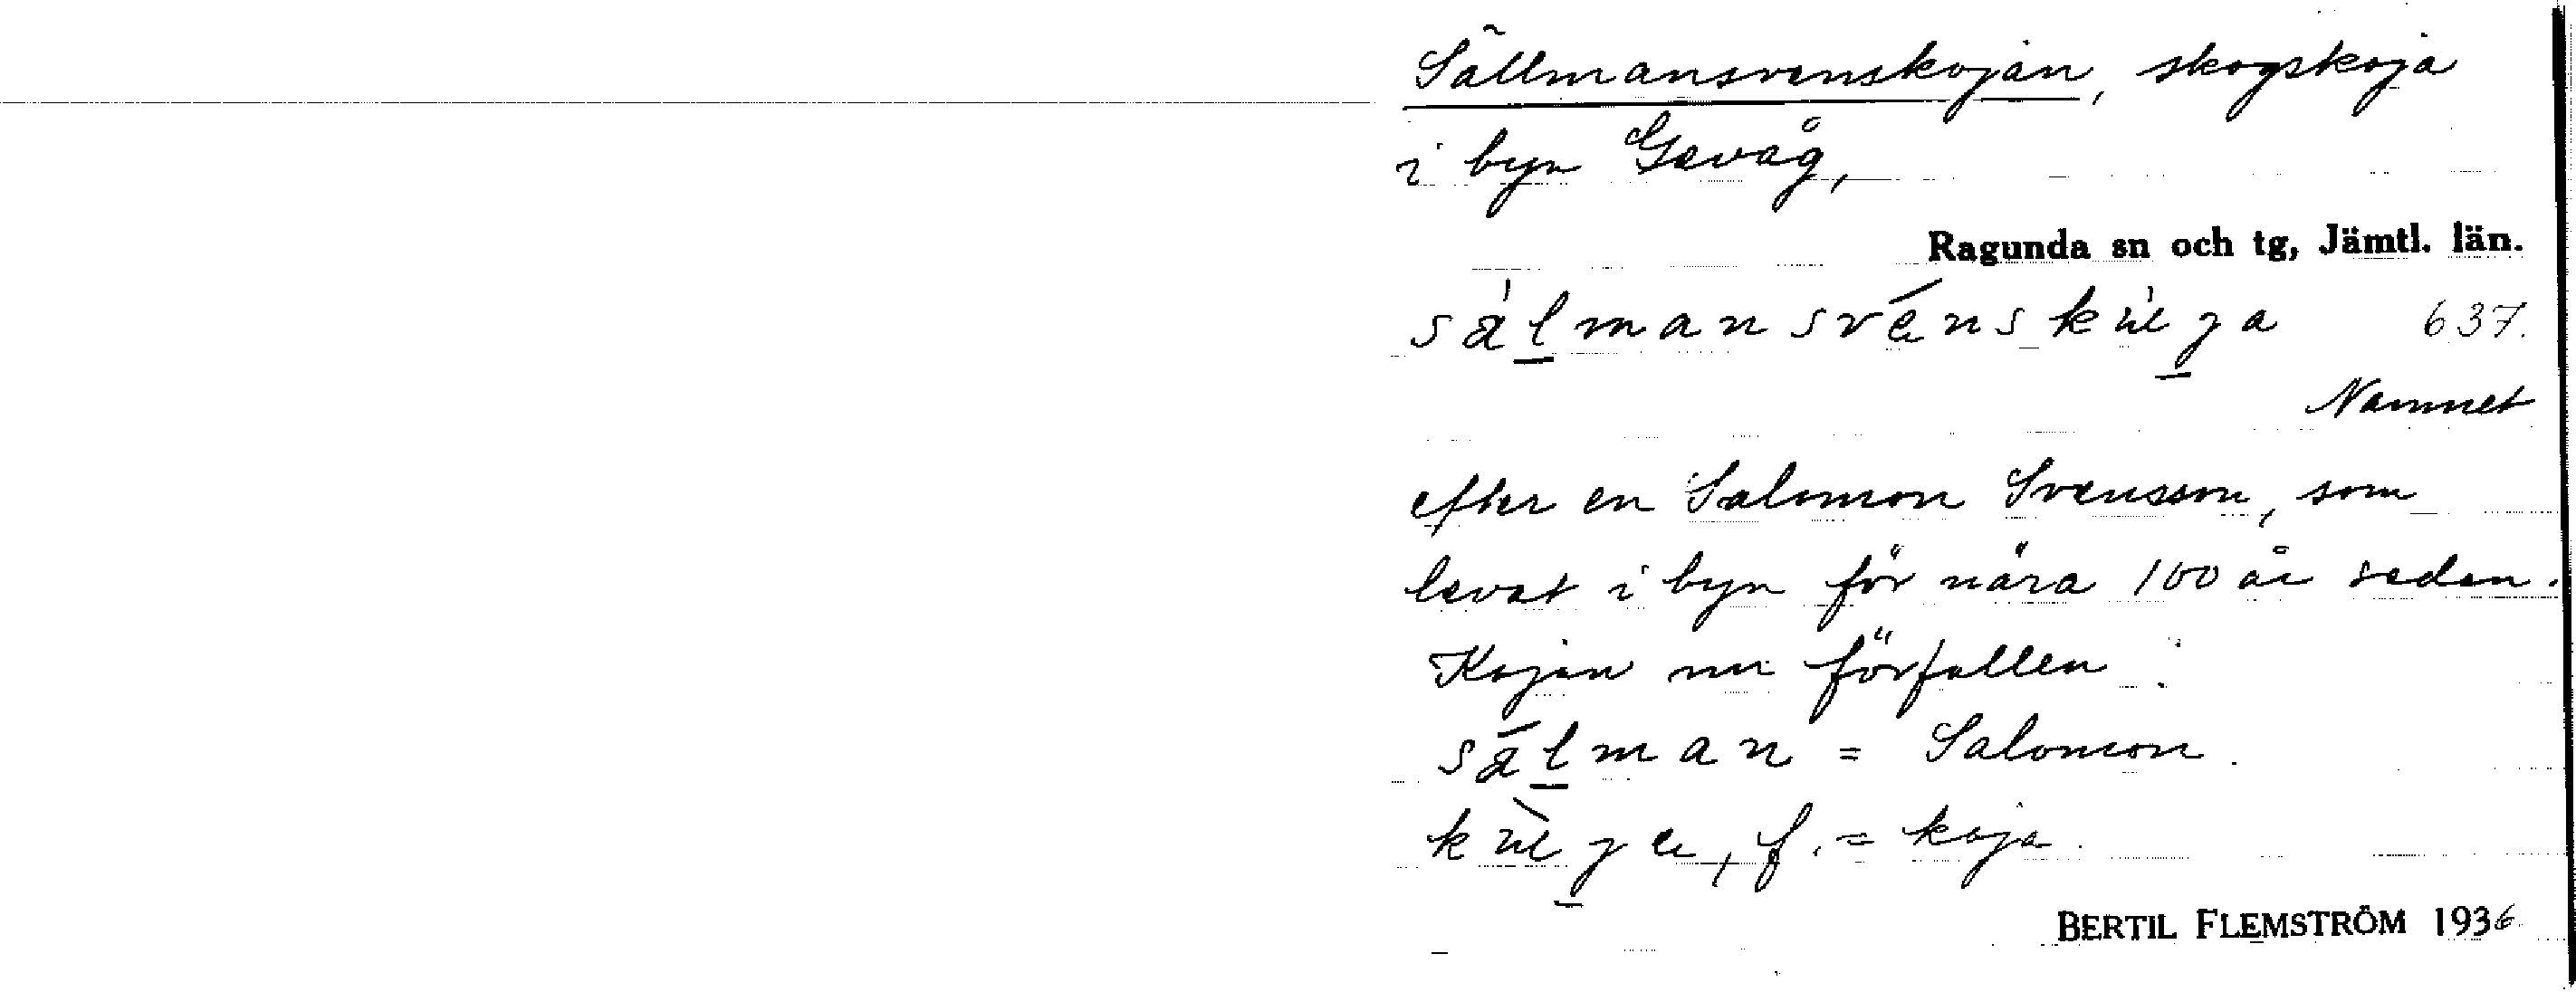 Sållmansvenskojan, skogskoja
i byn Gevåg,
Ragunda sn och tg, Jämtl. län.
637.
Namnet
efter en Salomon Svensson, som
levat i byn för nära 100 år sedan.
Kojan nu förfallen.
= Salomon.
f. = koja.
BERTIL FLEMSTRÖM 1936